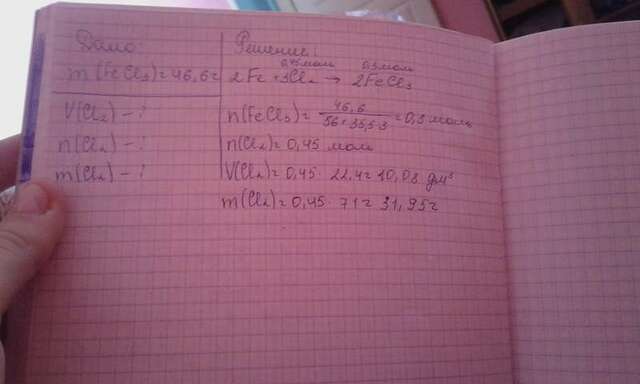 Дано:
m(FeCl3)=46,6г
V(Cl2) - ?
n(Cl2) - ?
m(Cl2) - ?
Решение:
0,45моль 0,3моль
2Fe+3Cl2 → 2FeCl3
n(FeCl3)= 46,6 / 56+35,5·3 =0,3 моль
n(Cl2)=0,45 моль
V(Cl2)=0,45 · 22,4= 10,08 дм³
m(Cl2)=0,45 · 71= 31,95г